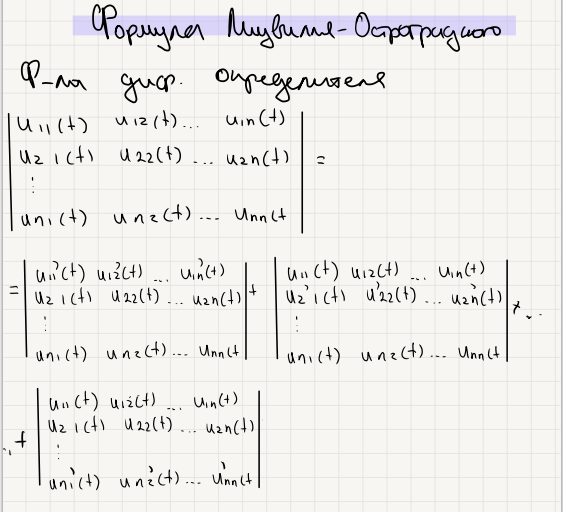 Формула Лиувилля-Остроградского
Ф-ла диф. определителя
| u₁₁(t) u₁₂(t) ... u₁ₙ(t) |
| u₂₁(t) u₂₂(t) ... u₂ₙ(t) | =
⋮
| uₙ₁(t) uₙ₂(t) ... uₙₙ(t |
= | u₁₁'(t) u₁₂'(t) ... u₁ₙ'(t) | + | u₁₁(t) u₁₂(t) ... u₁ₙ(t) |
| u₂₁(t) u₂₂(t) ... u₂ₙ(t) | | u₂₁'(t) u₂₂'(t) ... u₂ₙ'(t) | + ...
⋮ ⋮
| uₙ₁(t) uₙ₂(t) ... uₙₙ(t | | uₙ₁(t) uₙ₂(t) ... uₙₙ(t |
| u₁₁(t) u₁₂(t) ... u₁ₙ(t) |
.. + | u₂₁(t) u₂₂(t) ... u₂ₙ(t) |
⋮
| uₙ₁'(t) uₙ₂'(t) ... uₙₙ'(t |